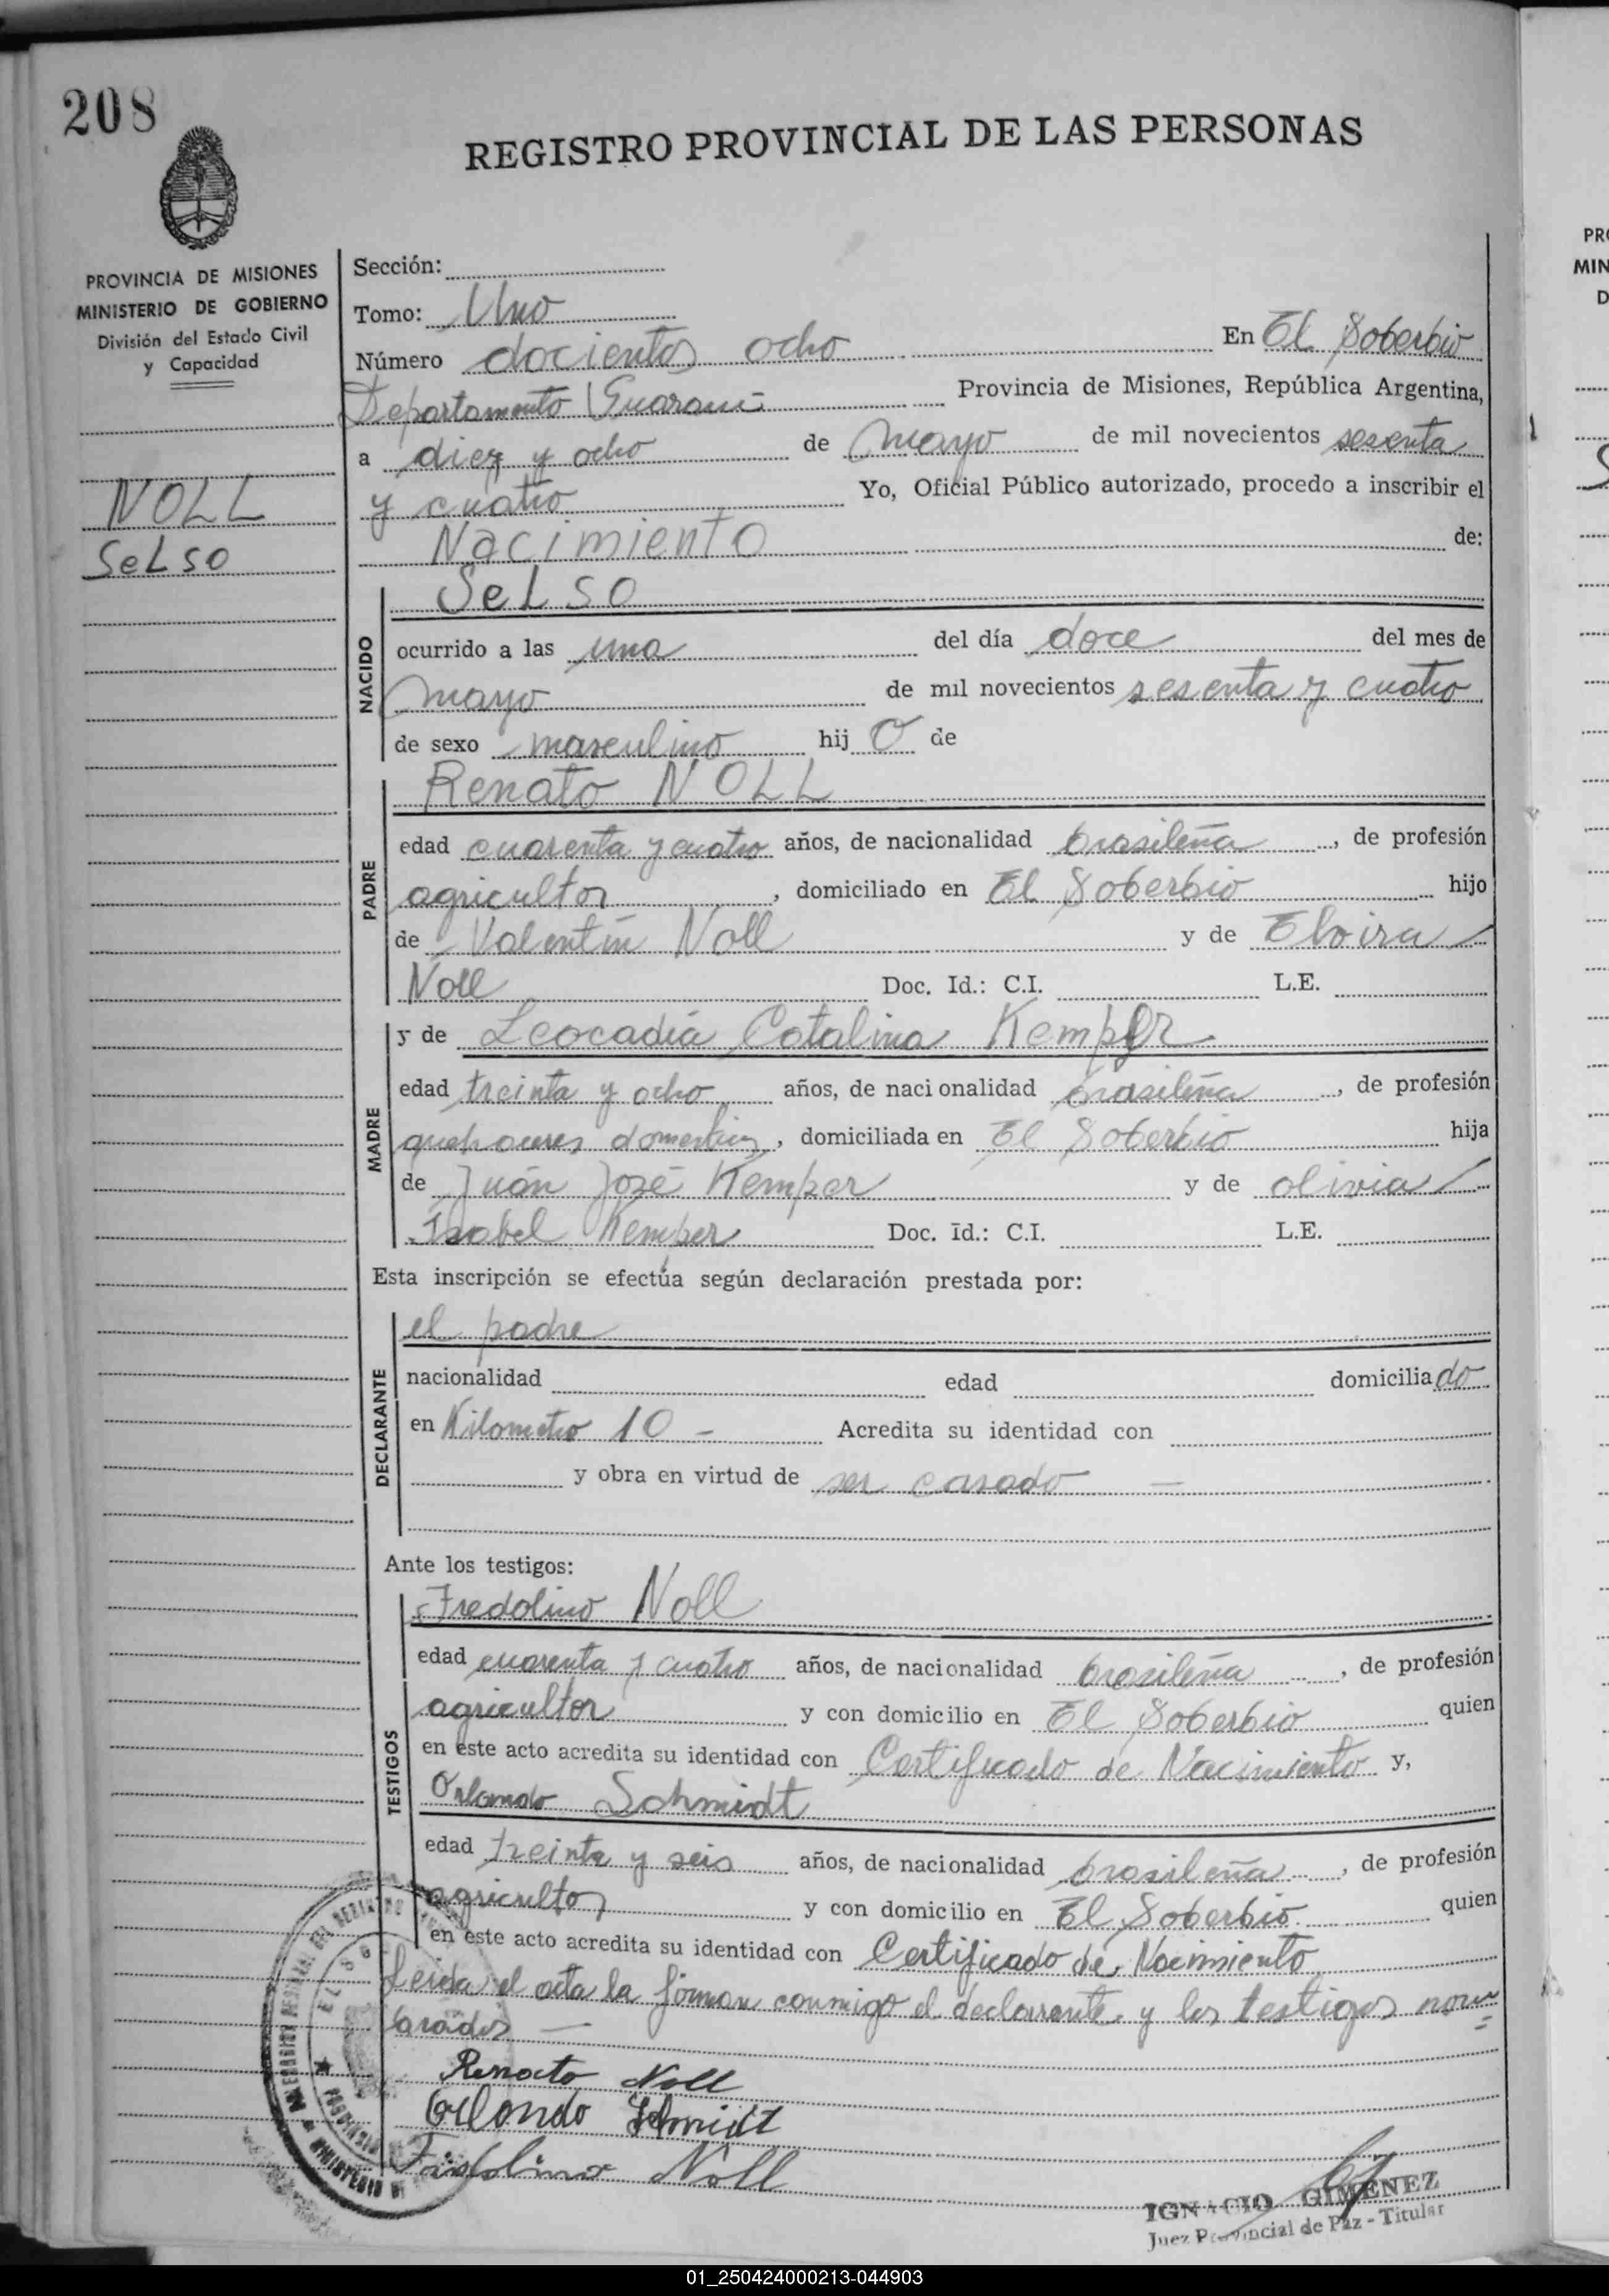 208
REGISTRO PROVINCIAL DE LAS PERSONAS
PROVINCIA DE MISIONES
MINISTERIO DE GOBIERNO
División del Estado Civil
y Capacidad
NOLL
SeLso
Sección:
Tomo: Uno
Número docientos ocho En El Soberbio
Departamento Guarani Provincia de Misiones, República Argentina,
a diez y ocho de mayo de mil novecientos sesenta
y cuatro Yo, Oficial Público autorizado, procedo a inscribir el
Nacimiento de:
NACIDO
SeLso
ocurrido a las una del día doce del mes de
mayo de mil novecientos sesenta y cuatro
de sexo masculino hij O de
PADRE
Renato NOLL
edad cuarenta y cuatro años, de nacionalidad brasileña, de profesión
agricultor, domiciliado en El Soberbio hijo
de Valentín Noll y de Elvira
Noll Doc. Id.: C.I. L.E.
MADRE
y de Leocadia Catalina Kemper
edad treinta y ocho años, de nacionalidad brasileña, de profesión
quehaceres domesticos, domiciliada en El Soberbio hija
de Juán José Kemper y de olivia
Isabel Kemper Doc. Id.: C.I. L.E.
Esta inscripción se efectúa según declaración prestada por:
DECLARANTE
el padre
nacionalidad edad domiciliado
en Kilometro 10 - Acredita su identidad con
y obra en virtud de ser casado —
Ante los testigos:
TESTIGOS
Fredolino Noll
edad cuarenta y cuatro años, de nacionalidad brasileña, de profesión
agricultor y con domicilio en El Soberbio quien
en este acto acredita su identidad con Certificado de Nacimiento y,
Orlando Schmidt
edad treinta y seis años, de nacionalidad brasileña, de profesión
agricultor y con domicilio en El Soberbio quien
en este acto acredita su identidad con Certificado de Nacimiento
Leida el acta la firman conmigo el declarante y los testigos nom
brados —
Renato Noll
Orlando Schmidt
Fridolino Noll
IGNACIO GIMENEZ
Juez Provincial de Paz - Titular
PR
MIN
D
01_250424000213-044903